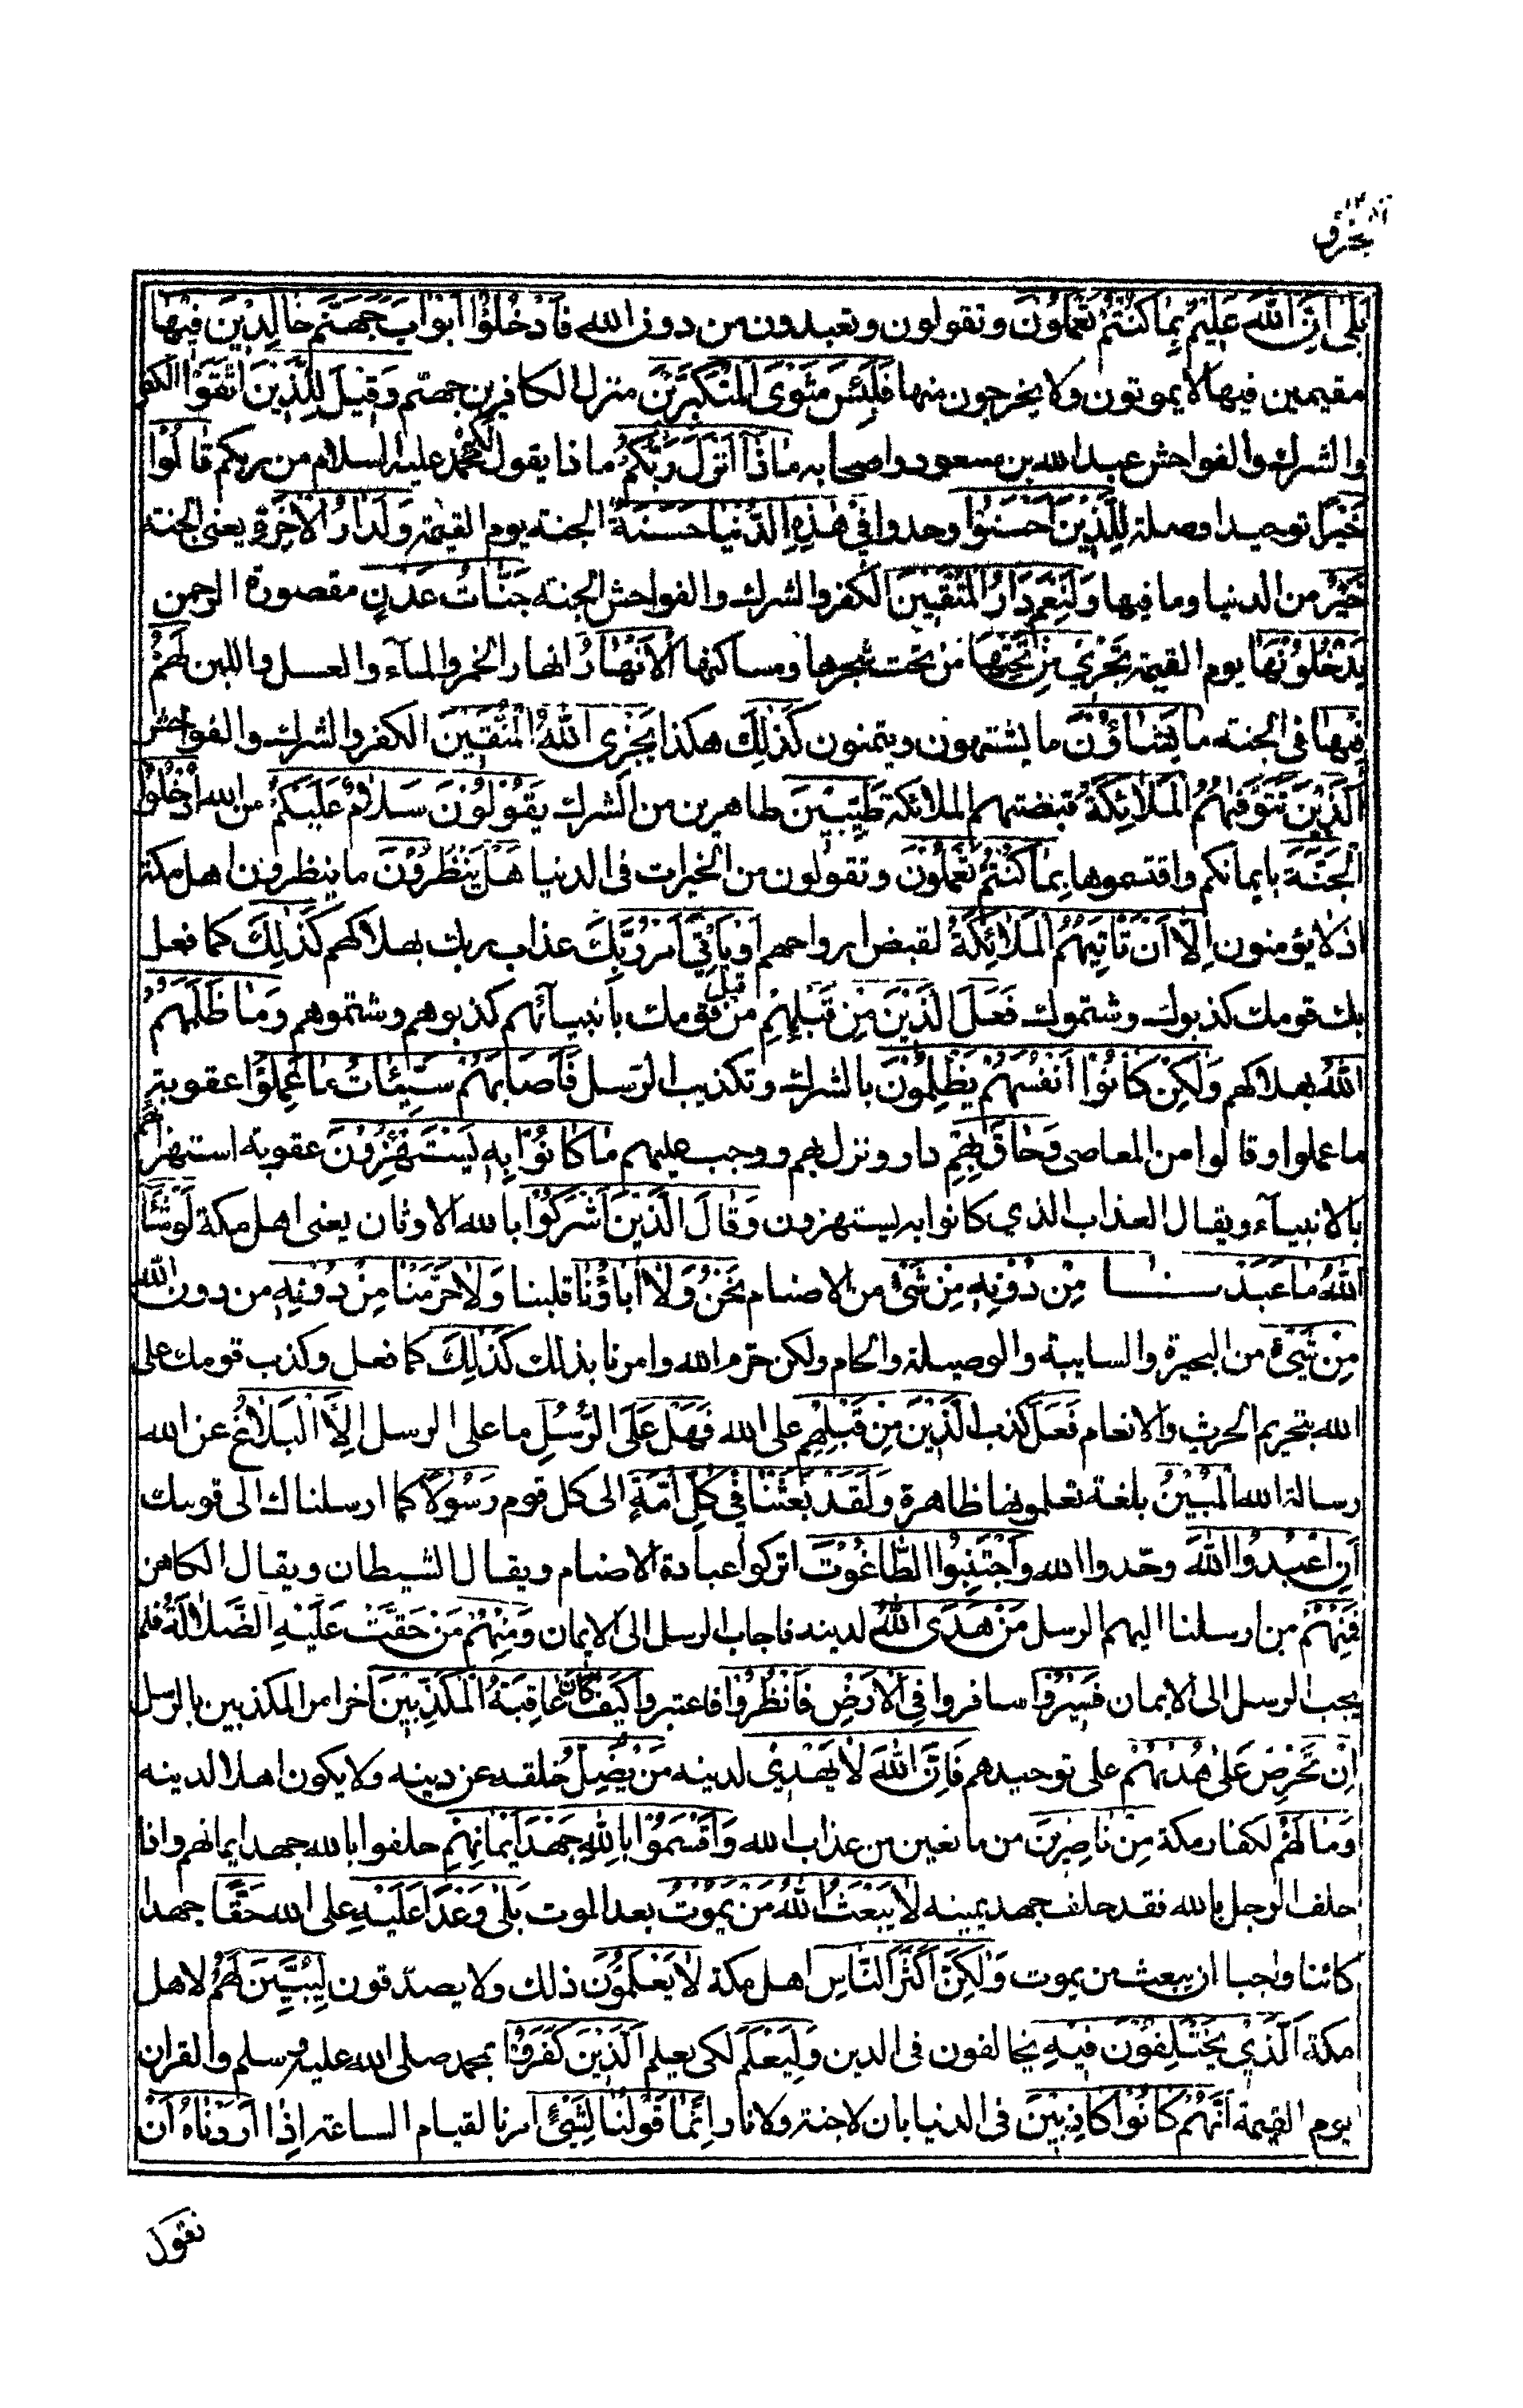 الجزؤ
بَلٰى اِنَّ اللّٰهَ عَلِيْمٌ بِمَا كُنْتُمْ تَعْمَلُوْنَ وتقولون وتعبدون من دون الله فَادْخُلُوْا اَبْوَابَ جَهَنَّمَ خَالِدِيْنَ فِيْهَا
مقيمين فيها لا يموتون ولا يخرجون منها فَلَبِئْسَ مَثْوَى الْمُتَكَبِّرِيْنَ منزل الكافرين جهنّم وَقِيْلَ لِلَّذِيْنَ اتَّقَوْا الكفر
والشرك والفواحش عبد الله بن مسعود واصحابه مَاذَا اَنْزَلَ رَبُّكُمْ ماذا يقول لكم محمد عليه السلام من ربكم قَالُوْا
خَيْرًا توحيدا وصلة لِلَّذِيْنَ اَحْسَنُوْا وحدوا فِيْ هٰذِهِ الدُّنْيَا حَسَنَةٌ الجنة يوم القيمة وَلَدَارُ الْاٰخِرَةِ يعنى الجنة
خَيْرٌ من الدنيا وما فيها وَلَنِعْمَ دَارُ الْمُتَّقِيْنَ الكفر والشرك والفواحش الجنة جَنَّاتُ عَدْنٍ مقصورة الرحمن
يَدْخُلُوْنَهَا يوم القيمة تَجْرِيْ مِنْ تَحْتِهَا من تحت شجرها ومساكنها الْاَنْهَارُ انهار الخمر والمآء والعسل واللبن لَهُمْ
فِيْهَا فى الجنة مَا يَشَاؤُنَ ما يشتهون ويتمنون كَذٰلِكَ هكذا يَجْزِى اللّٰهُ الْمُتَّقِيْنَ الكفر والشرك والفواحش
اَلَّذِيْنَ تَتَوَفّٰيهُمُ الْمَلَائِكَةُ قبضتهم الملائكة طَيِّبِيْنَ طاهرين من الشرك يَقُوْلُوْنَ سَلَامٌ عَلَيْكُمْ من الله ادْخُلُوا
الْجَنَّةَ بايمانكم واقتسموها بِمَا كُنْتُمْ تَعْمَلُوْنَ وتقولون من الخيرات فى الدنيا هَلْ يَنْظُرُوْنَ ما ينظرون اهل مكة
اذ لا يؤمنون اِلَّا اَنْ تَاْتِيَهُمُ الْمَلَائِكَةُ لقبض ارواحهم اَوْ يَاْتِيَ اَمْرُ رَبِّكَ عذاب ربك بهلاكهم كَذٰلِكَ كما فعل
بك قومك كذبوك وشتموك فَعَلَ الَّذِيْنَ مِنْ قَبْلِهِمْ من قبل قومك بانبيآئهم كذبوهم وشتموهم وَمَا ظَلَمَهُمُ
اللّٰهُ بهلاكهم وَلٰكِنْ كَانُوْا اَنْفُسَهُمْ يَظْلِمُوْنَ بالشرك وتكذيب الرسل فَاَصَابَهُمْ سَيِّئَاتُ مَا عَمِلُوْا عقوبة
ما عملوا وقالوا من المعاصى وَحَاقَ بِهِمْ دار ونزل بهم ووجب عليهم مَا كَانُوْا بِهٖ يَسْتَهْزِؤُنَ عقوبة استهزائهم
بالانبيآء ويقال العذاب الذي كانوا به يستهزون وَقَالَ الَّذِيْنَ اَشْرَكُوْا بالله الاوثان يعنى اهل مكة لَوْ شَآءَ
اللّٰهُ مَا عَبَدْنَا مِنْ دُوْنِهٖ مِنْ شَيْءٍ من الاصنام نَحْنُ وَلَا اٰبَاؤُنَا قلبنا وَلَا حَرَّمْنَا مِنْ دُوْنِهٖ من دون الله
مِنْ شَيْءٍ من البحيرة والسايبة والوصيلة والحام ولكن حرّم الله وامرنا بذلك كَذٰلِكَ كما فعل وكذب قومك على
الله بتحريم الحرث والانعام فَعَلَ كذب الَّذِيْنَ مِنْ قَبْلِهِمْ على الله فَهَلْ عَلَى الرُّسُلِ ما على الرسل اِلَّا الْبَلَاغُ عن الله
رسالة الله الْمُبِيْنُ بلغة تعلمونها ظاهرة وَلَقَدْ بَعَثْنَا فِيْ كُلِّ اُمَّةٍ الى كل قوم رَسُوْلًا كما ارسلناك الى قومك
اَنِ اعْبُدُوا اللّٰهَ وحّدوا الله وَاجْتَنِبُوا الطَّاغُوْتَ اتركوا عبادة الاصنام ويقال الشيطان ويقال الكاهن
فَمِنْهُمْ من ارسلنا اليهم الرسل مَنْ هَدَى اللّٰهُ لدينه فاجاب الرسل الى الايمان وَمِنْهُمْ مَنْ حَقَّتْ عَلَيْهِ الضَّلَالَةُ فلم
يجب الرسل الى الايمان فَسِيْرُوْا سافروا فِى الْاَرْضِ فَانْظُرُوْا فاعتبروا كَيْفَ كَانَ عَاقِبَةُ الْمُكَذِّبِيْنَ اخر امر المكذبين بالرّسل
اِنْ تَحْرِصْ عَلٰى هُدٰىهُمْ على توحيدهم فَاِنَّ اللّٰهَ لَا يَهْدِيْ لدينه مَنْ يُضِلُّ خلقه عن دينه ولا يكون اهلا لدينه
وَمَا لَهُمْ لكفار مكة مِنْ نَاصِرِيْنَ من مانعين من عذاب الله وَاَقْسَمُوْا بِاللّٰهِ جَهْدَ اَيْمَانِهِمْ حلفوا بالله جهد ايمانهم واذا
حلف الرجل بالله فقد حلف جهد يمينه لَا يَبْعَثُ اللّٰهُ مَنْ يَمُوْتُ بعد الموت بَلٰى وَعْدًا عَلَيْهِ على الله حَقًّا جهدا
كائنا واجبا ان يبعث من يموت وَلٰكِنَّ اَكْثَرَ النَّاسِ اهل مكة لَا يَعْلَمُوْنَ ذلك ولا يصدّقون لِيُبَيِّنَ لَهُمْ لاهل
مكة الَّذِيْ يَخْتَلِفُوْنَ فِيْهِ يخالفون فى الدين وَلِيَعْلَمَ لكى يعلم الَّذِيْنَ كَفَرُوْا بمحمد صلى الله عليه وسلم والقران
يوم القيمة اَنَّهُمْ كَانُوْا كَاذِبِيْنَ فى الدنيا بان لا جنة ولا نار اِنَّمَا قَوْلُنَا لِشَيْءٍ امرنا لقيام الساعة اِذَا اَرَدْنَاهُ اَنْ
نقول